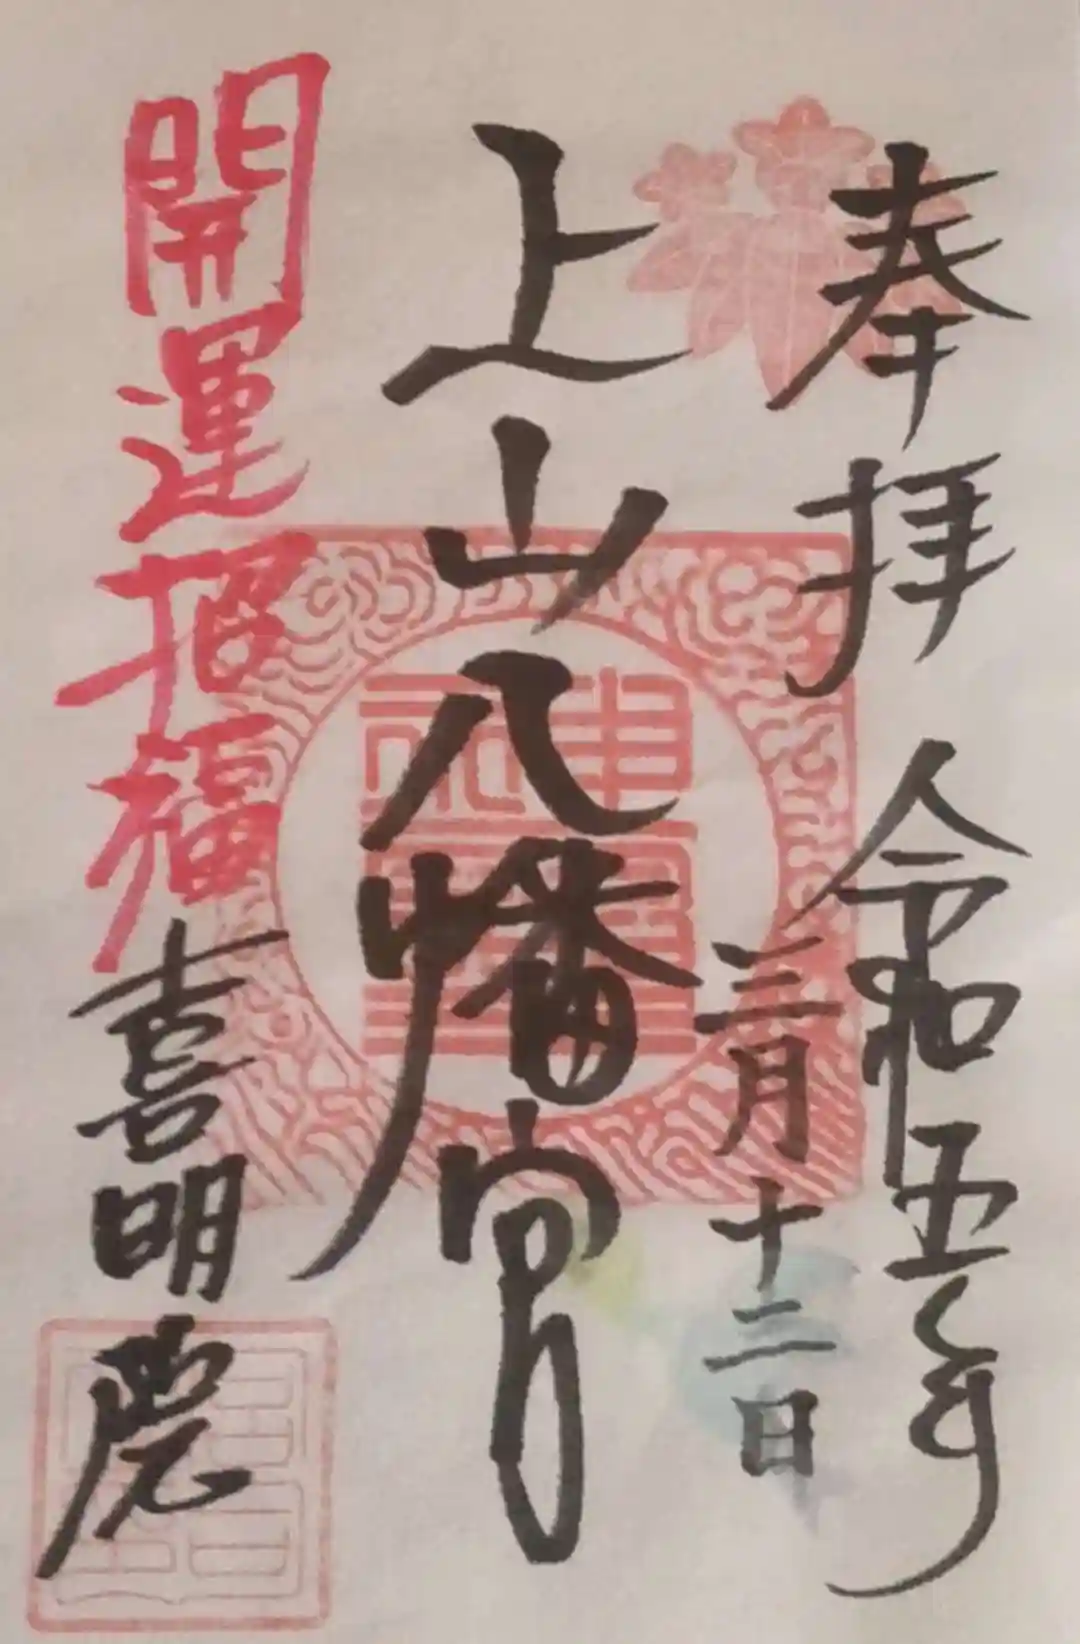 奉拝
令和五年
三月十二日
上山八幡宮
開運招福
喜明農